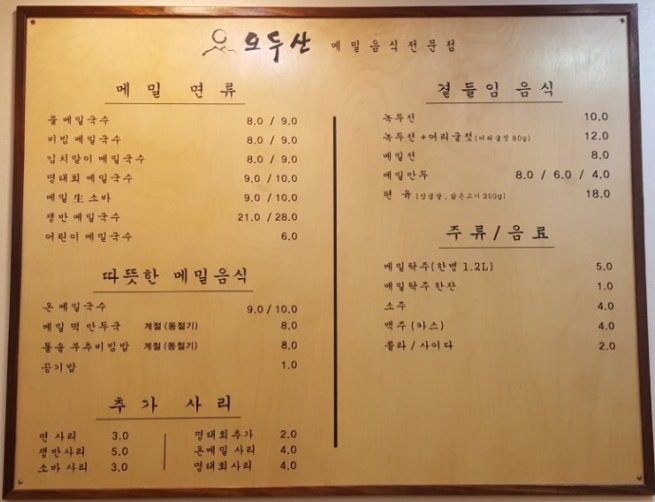 오두산 메밀음식전문점
메밀 면류
물 메밀국수 8.0 / 9.0
비빔 메밀국수 8.0 / 9.0
김치말이 메밀국수 8.0 / 9.0
명태회 메밀국수 9.0 / 10.0
메밀 生 소바 9.0 / 10.0
쟁반 메밀국수 21.0 / 28.0
어린이 메밀국수 6.0
따뜻한 메밀음식
온 메밀국수 9.0 / 10.0
메밀 떡 만두국 계절 (동절기) 8.0
돌솥 부추비빔밥 계절 (동절기) 8.0
공기밥 1.0
추가 사리
면 사리 3.0
쟁반사리 5.0
소바 사리 3.0
명태회추가 2.0
온메밀 사리 4.0
명태회사리 4.0
곁들임 음식
녹두전 10.0
녹두전 + 어리굴젓 (어리굴젓 80g) 12.0
메밀전 8.0
메밀만두 8.0 / 6.0 / 4.0
편 육 (삼겹살, 삶은고기 200g) 18.0
주류/음료
메밀탁주 (한병 1.2L) 5.0
메밀탁주 한잔 1.0
소주 4.0
맥주 (카스) 4.0
콜라 / 사이다 2.0